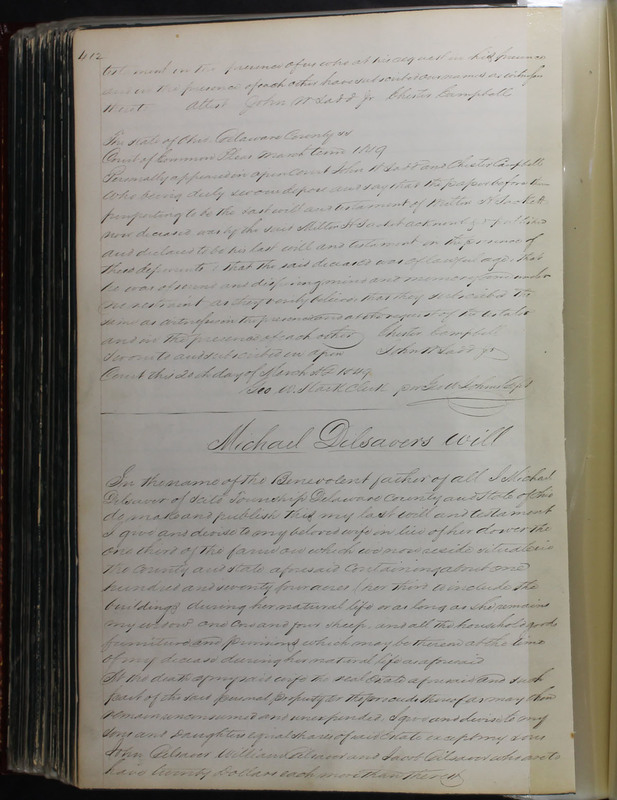 412
testment in the presence of us who at his request in his presence
and in the presence of each other have subscribed our names as witnesses
thereto Attest John W Ladd Jr Chester Campbell
The State of Ohio Delaware County ss
Court of Common Pleas March term 1849
Personally appeared in open Court John W Ladd and Chester Campbell
who being duly sworn depose and say that the paper before them
purporting to be the last will and testament of
now deceased was by the said acknowledged published
and declared to be his last will and testament in the presence of
these deponents & that the said deceased was of lawful age that
he was of sound and disposing mind and memory and under
no restraint as they verily believe that they subscribed the
same as witnesses in the presence and at the request of the testator
and in the presence of each other Chester Campbell
Sworn to and subscribed in open John W Ladd Jr
Court this day of March AD 1849
Geo. W. Stark Clerk per Geo W
Michael Delsavers will
In the name of the Benevolent father of all I Michal
Delsaver of Township Delaware County and State of Ohio
do make and publish this my last will and testament
I give and devise to my beloved wife in lieu of her dower the
one third of the farm on which we now reside situate in
the County and state aforesaid containing about one
hundred and seventy four acres (her third to include the
buildings) during her natural life or as long as she remains
my widow one cow and four sheep and all the household goods
furniture and provisions which may be therein at the time
of my decease during her natural life as aforesaid
At the death of my said wife the real estate aforesaid and such
part of the said personal property or the proceeds thereof as may then
remain unconsumed and unexpended I give and devise to my
sons and daughters equal shares of said estate except my sons
John Delsaver William Delsaver and Jacob Delsaver who are to
have twenty dollars each more than the rest